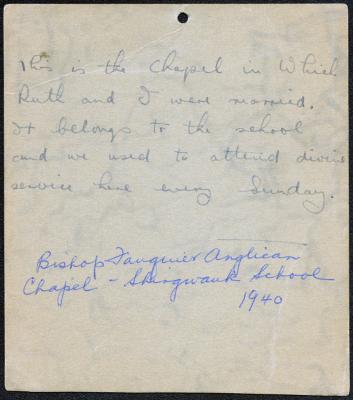 This is the Chapel in Which
Ruth and I were married.
It belongs to the school
and we used to attend divine
service here every Sunday.
Bishop Fauquier Anglican
Chapel - Shingwauk School
1940